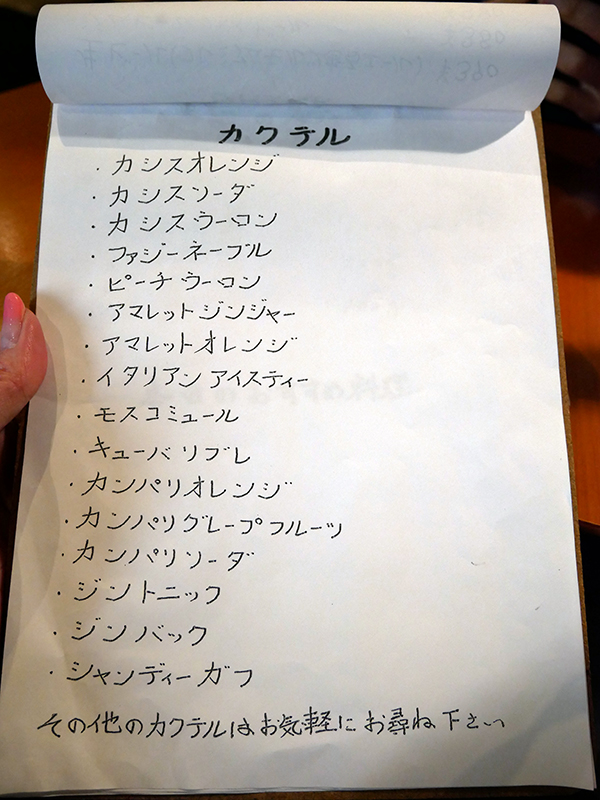 カクテル
・カシスオレンジ
・カシスソーダ
・カシスウーロン
・ファジーネーブル
・ピーチウーロン
・アマレットジンジャー
・アマレットオレンジ
・イタリアンアイスティー
・モスコミュール
・キューバリブレ
・カンパリオレンジ
・カンパリグレープフルーツ
・カンパリソーダ
・ジントニック
・ジンバック
・シャンディーガフ
その他のカクテルはお気軽にお尋ね下さい